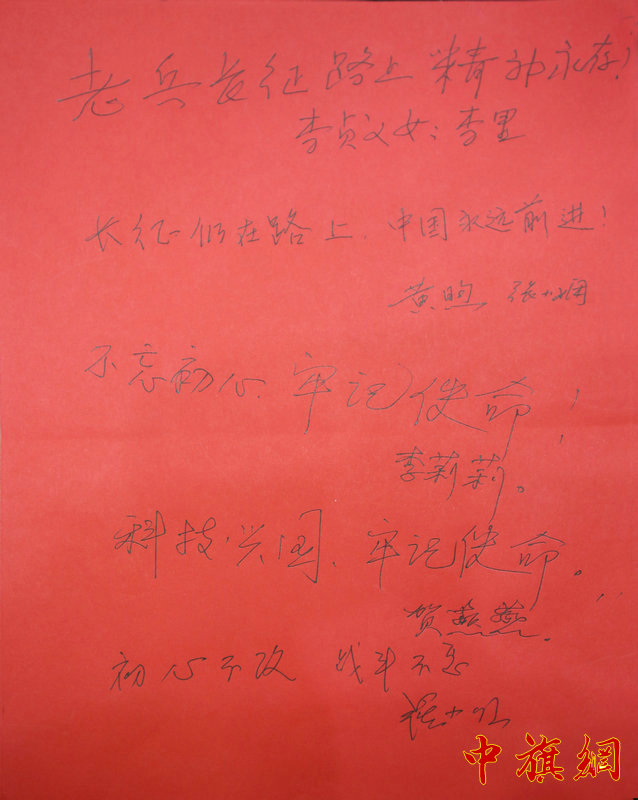 老兵长征路上精神永存!
李贞父女:李里
长征仍在路上,中国永远前进!
黄煦 张小娴
不忘初心、牢记使命!
李莉莉。
科技兴国、牢记使命。
贺燕燕.
初心不改 战斗不息
中旗網